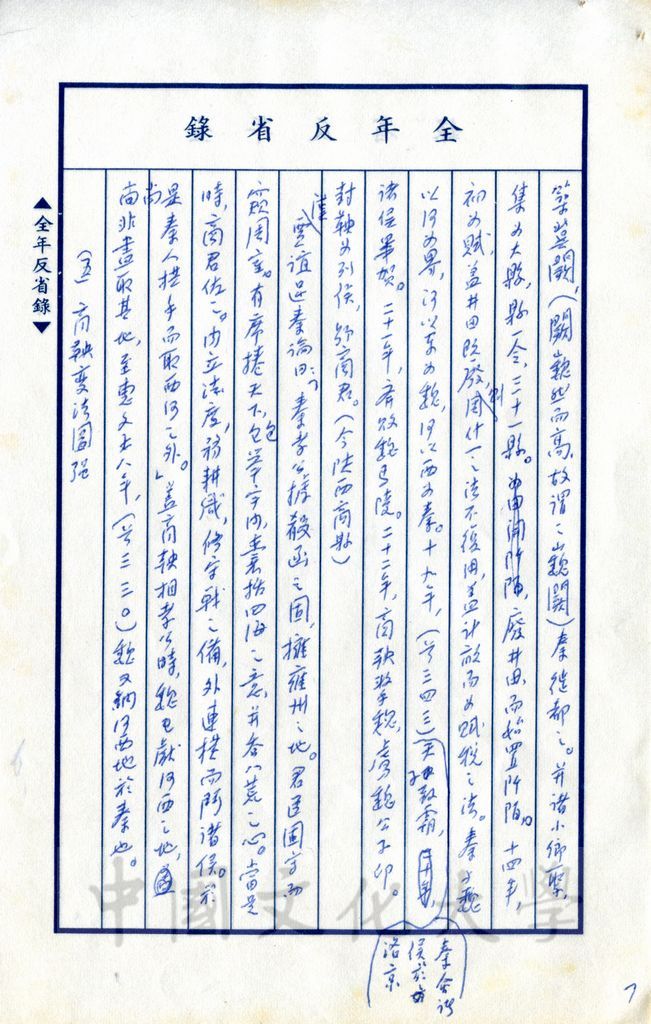 全年反省錄
築冀闕，（闕巍然而高，故謂之巍闕）秦徙都之。并諸小鄉聚，
集為大縣，縣一令，三十一縣。為田開阡陌，廢井田而始置阡陌。十四年，
初為賦，蓋井田既廢，則周什一之法不復用，蓋計畝而為賦稅之法。秦與魏
以河為界，河以東為魏，河以西為秦。十九年，（前三四三）天子致霸，
秦會諸侯於洛京
諸侯畢賀。二十一年，齊敗魏馬陵。二十二年，商鞅擊魏，虜魏公子卬。
封鞅為列侯，號商君。（今陝西商縣）
漢賈誼過秦論曰：「秦孝公據殽函之固，擁雍州之地。君臣固守而
窺周室。有席捲天下，包舉宇內，囊括四海之意，并吞八荒之心。當是
時，商君佐之。內立法度，務耕織，修守戰之備，外連橫而鬥諸侯。於
是秦人拱手而取西河之外。」蓋商鞅相孝公時，魏已獻河西之地，
尚非盡取其地，至惠文王八年，（前三三〇）魏又納河西地於秦也。
（五）商鞅變法圖強
▲全年反省錄▼
中國文化大學
7